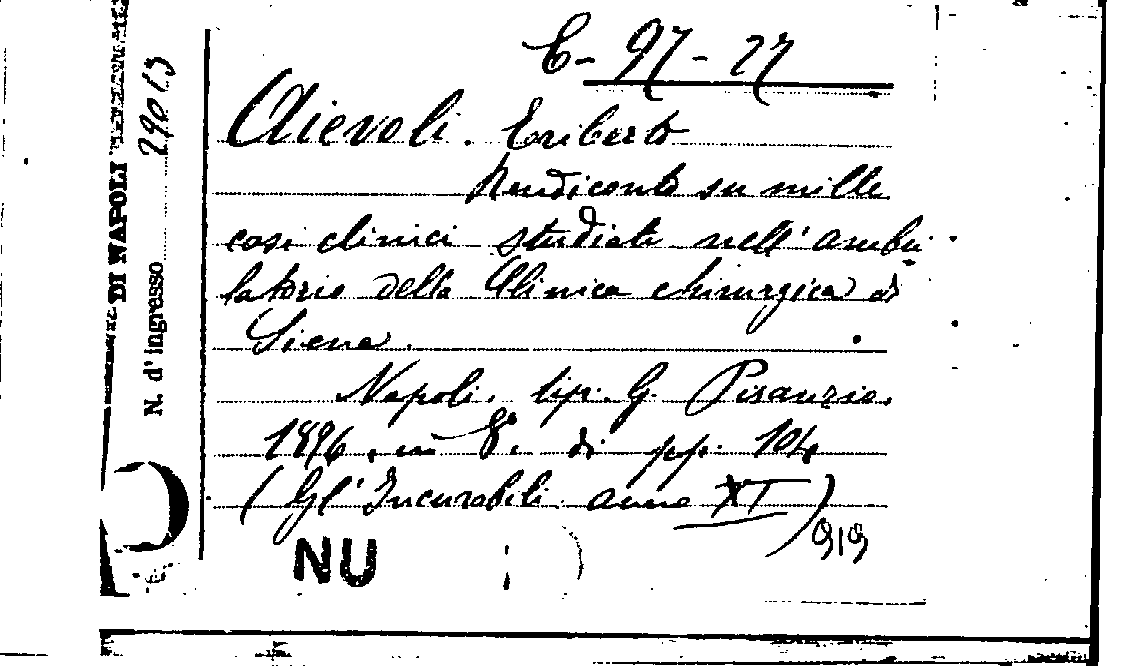 C-97-27
Aievoli. Eriberto
Rendiconto su mille
casi clinici studiati nell'ambu
latorio della Clinica chirurgica di
Siena.
Napoli. tip. G. Pisanzio.
1896, in 8°. di pp. 104
(Gl'Incurabili anno XI)
919
NU
DI NAPOLI
N. d'ingresso 29013